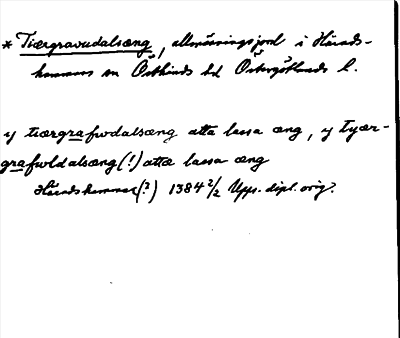 * Tiærgravudalsæng, allmänningsjord i Härads-
hammars sn Östkinds hd Östergötlands l.
y tiærgrafwdalsæng atta lassa æng, y tyær-
grafwldalsæng (!) atta lassa æng
Häradshammar (?) 1384 2/2 Upps. dipl. orig.